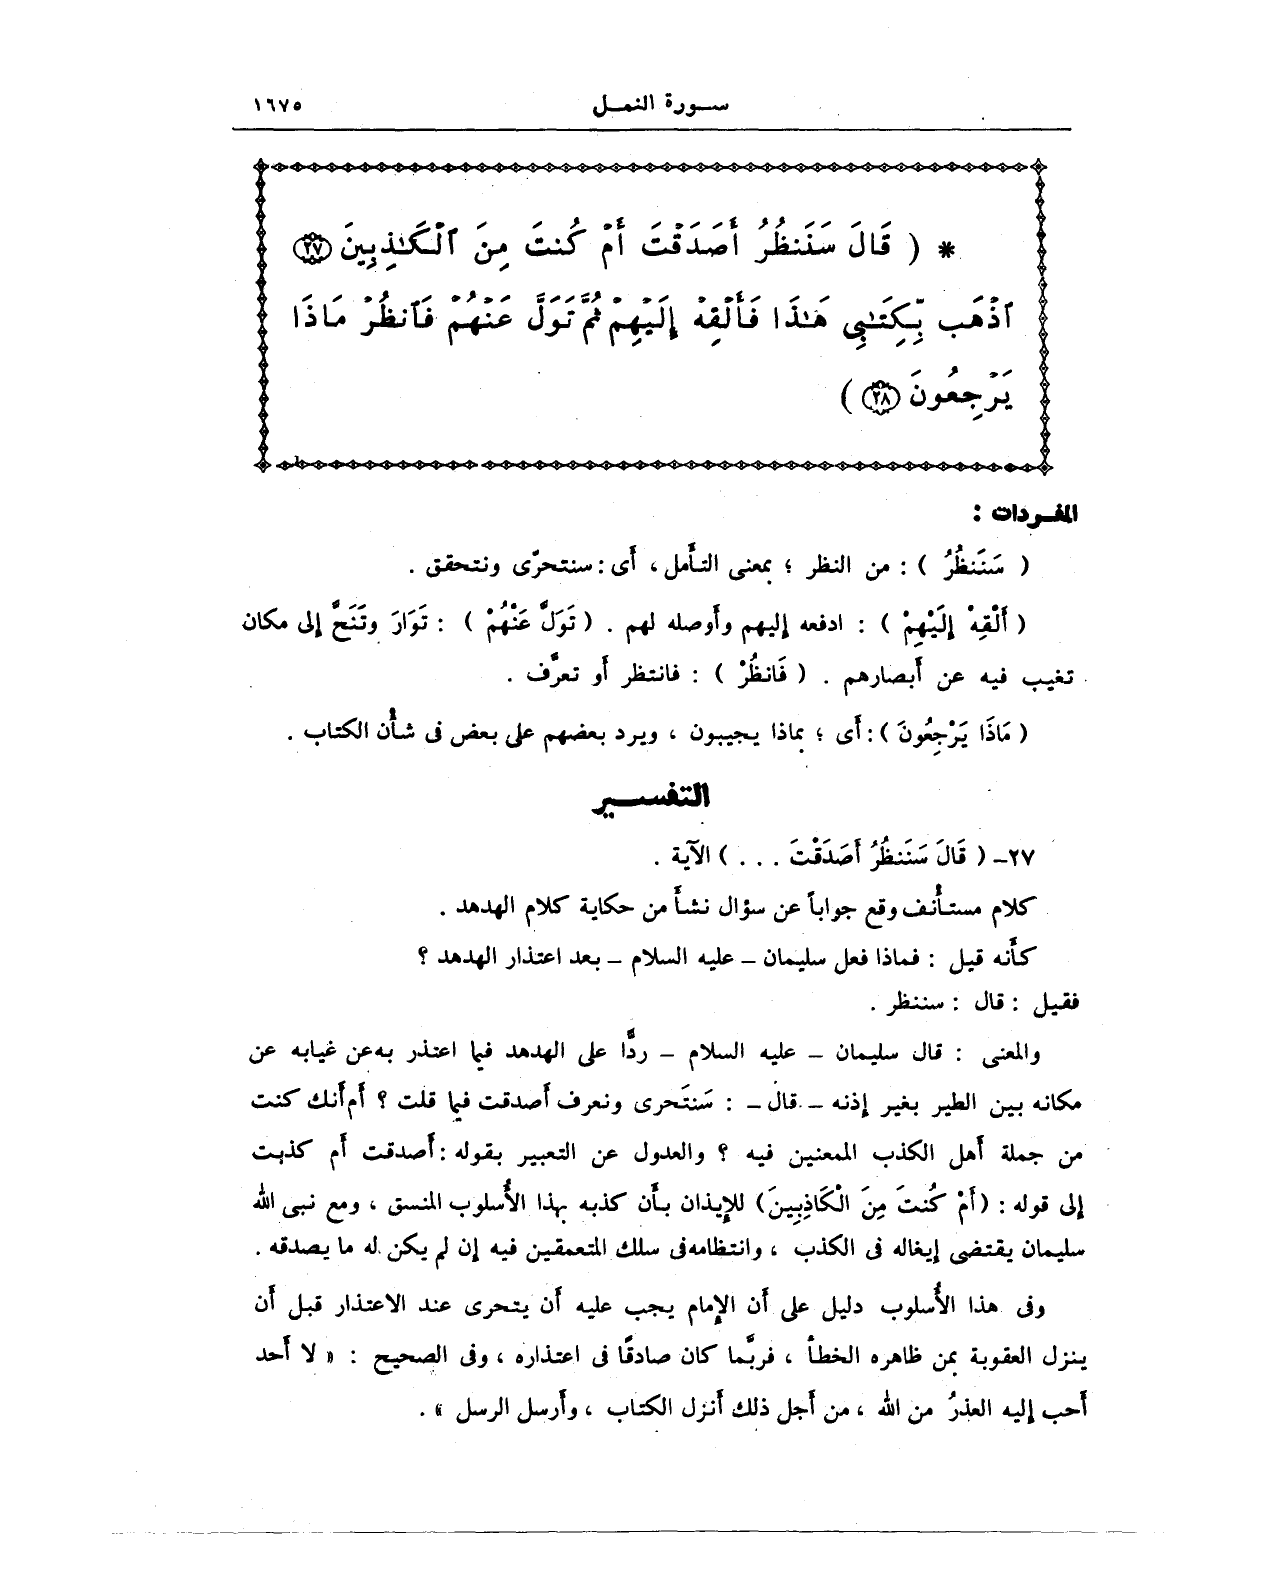 سورة النمل ١٦٧٥
* ( قَالَ سَنَنظُرُ أَصَدَقْتَ أَمْ كُنتَ مِنَ ٱلْكَـٰذِبِينَ ٢٧
ٱذْهَب بِّكِتَـٰبِى هَـٰذَا فَأَلْقِهْ إِلَيْهِمْ ثُمَّ تَوَلَّ عَنْهُمْ فَٱنظُرْ مَاذَا
يَرْجِعُونَ ٢٨ )
المفردات :
( سَنَنظُرُ ) : من النظر ؛ بمعنى التأمل ، أى : سنتحرّى ونتحقق .
( أَلْقِهْ إِلَيْهِمْ ) : ادفعه إليهم وأوصله لهم . ( تَوَلَّ عَنْهُمْ ) : تَوَارَ وتَنَحَّ إلى مكان
تغيب فيه عن أبصارهم . ( فَانظُرْ ) : فانتظر أو تعرَّف .
( مَاذَا يَرْجِعُونَ ) : أى ؛ بماذا يجيبون ، ويرد بعضهم على بعض فى شأن الكتاب .
التفسير
٢٧- ( قَالَ سَنَنظُرُ أَصَدَقْتَ . . . ) الآية .
كلام مستأنف وقع جواباً عن سؤال نشأ من حكاية كلام الهدهد .
كأنه قيل : فماذا فعل سليمان - عليه السلام - بعد اعتذار الهدهد ؟
فقيل : قال : سننظر .
والمعنى : قال سليمان - عليه السلام - ردًّا على الهدهد فيما اعتذر به عن غيابه عن
مكانه بين الطير بغير إذنه - قال - : سَنتَحرى ونعرف أصدقت فيما قلت ؟ أم أنك كنت
من جملة أهل الكذب الممعنين فيه ؟ والعدول عن التعبير بقوله : أصدقت أم كذبت
إلى قوله : ( أَمْ كُنتَ مِنَ الْكَاذِبِينَ ) للإيذان بأن كذبه بهذا الأُسلوب المنسق ، ومع نبى الله
سليمان يقتضى إيغاله فى الكذب ، وانتظامه فى سلك المتعمقين فيه إن لم يكن له ما يصدقه .
وفى هذا الأُسلوب دليل على أن الإمام يجب عليه أن يتحرى عند الاعتذار قبل أن
ينزل العقوبة بمن ظاهره الخطأ ، فربَّما كان صادقًا فى اعتذاره ، وفى الصحيح : « لا أحد
أحب إليه العذرُ من الله ، من أجل ذلك أنزل الكتاب ، وأرسل الرسل » .